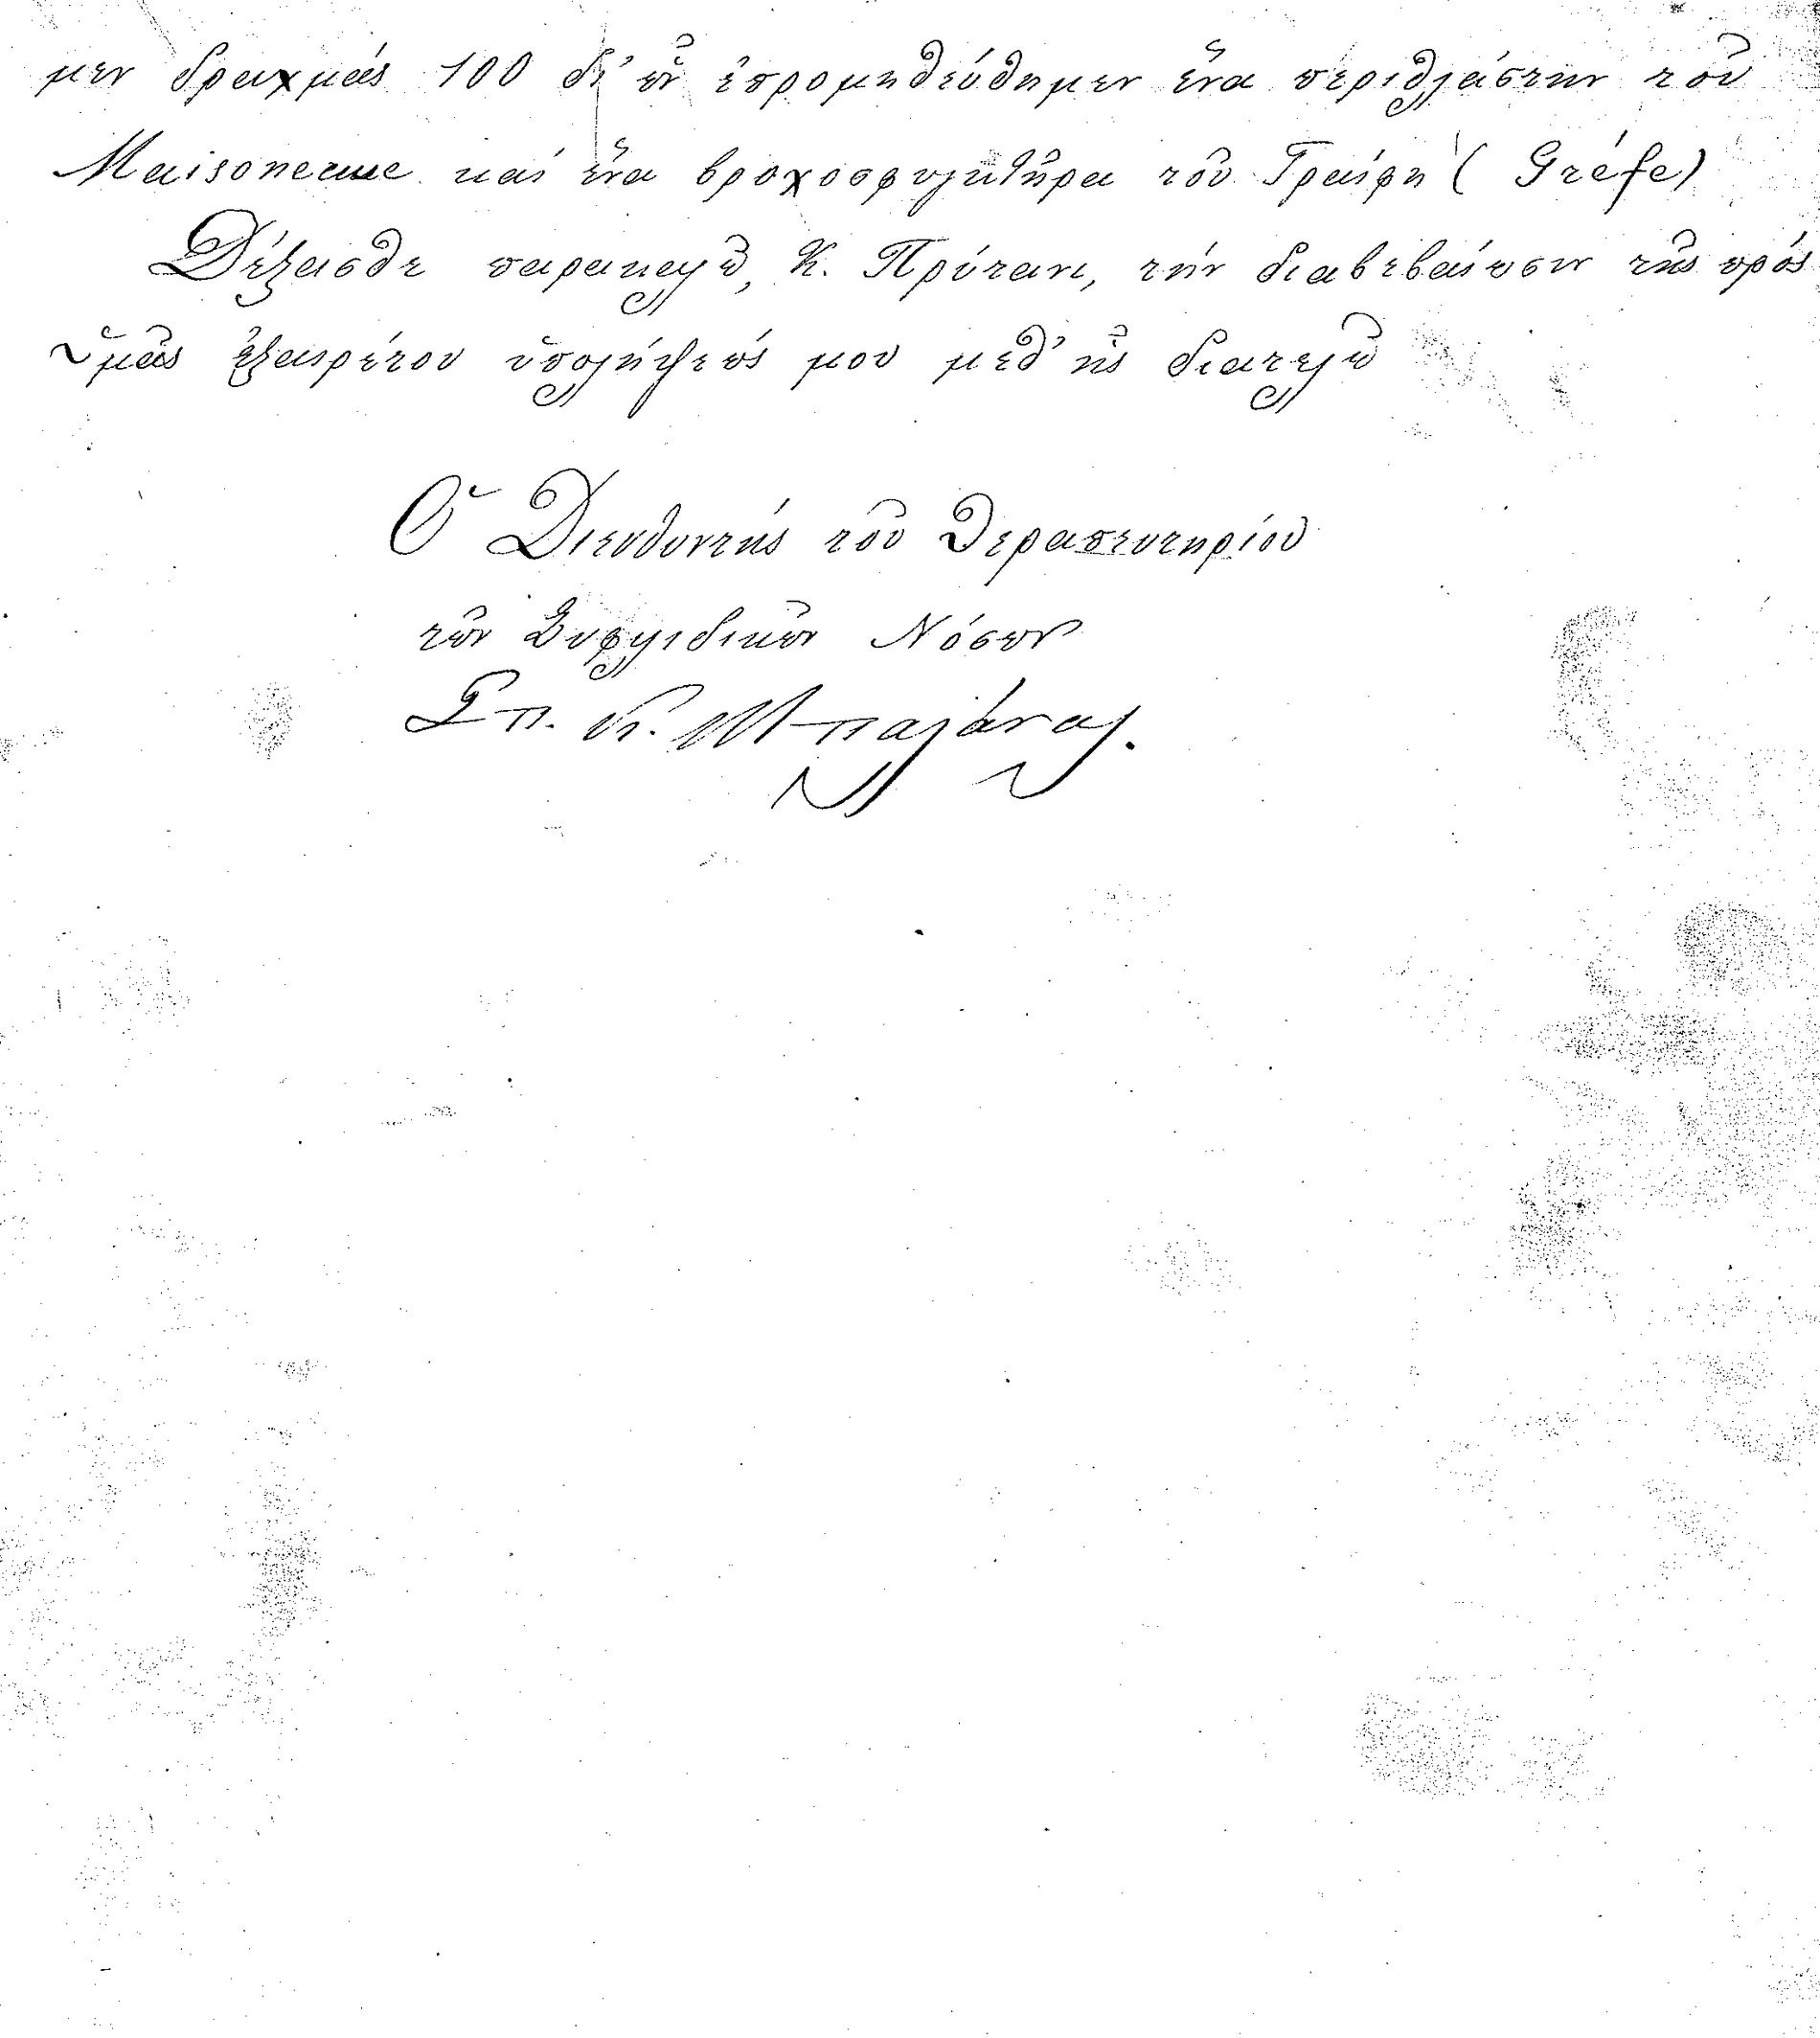 μεν δραχμάς 100 δι' ὧν ἐπρομηθεύθημεν ἕνα περιθλάστην τοῦ
Maisoneuue καί ἕνα βροχοσφιγκτῆρα τοῦ Γραίφη (Gréfe)
Δέξασθε παρακαλῶ, Κ. Πρύτανι, τήν διαβεβαίωσιν τῆς πρός
ὑμᾶς ἐξαιρέτου ὑπολήψεώς μου μεθ' ἧς διατελῶ
Ὁ Διευθυντής τοῦ Θεραπευτηρίου
τῶν Συφιλιδικῶν Νόσων
Σπ. Κ. Μπαλάνος.